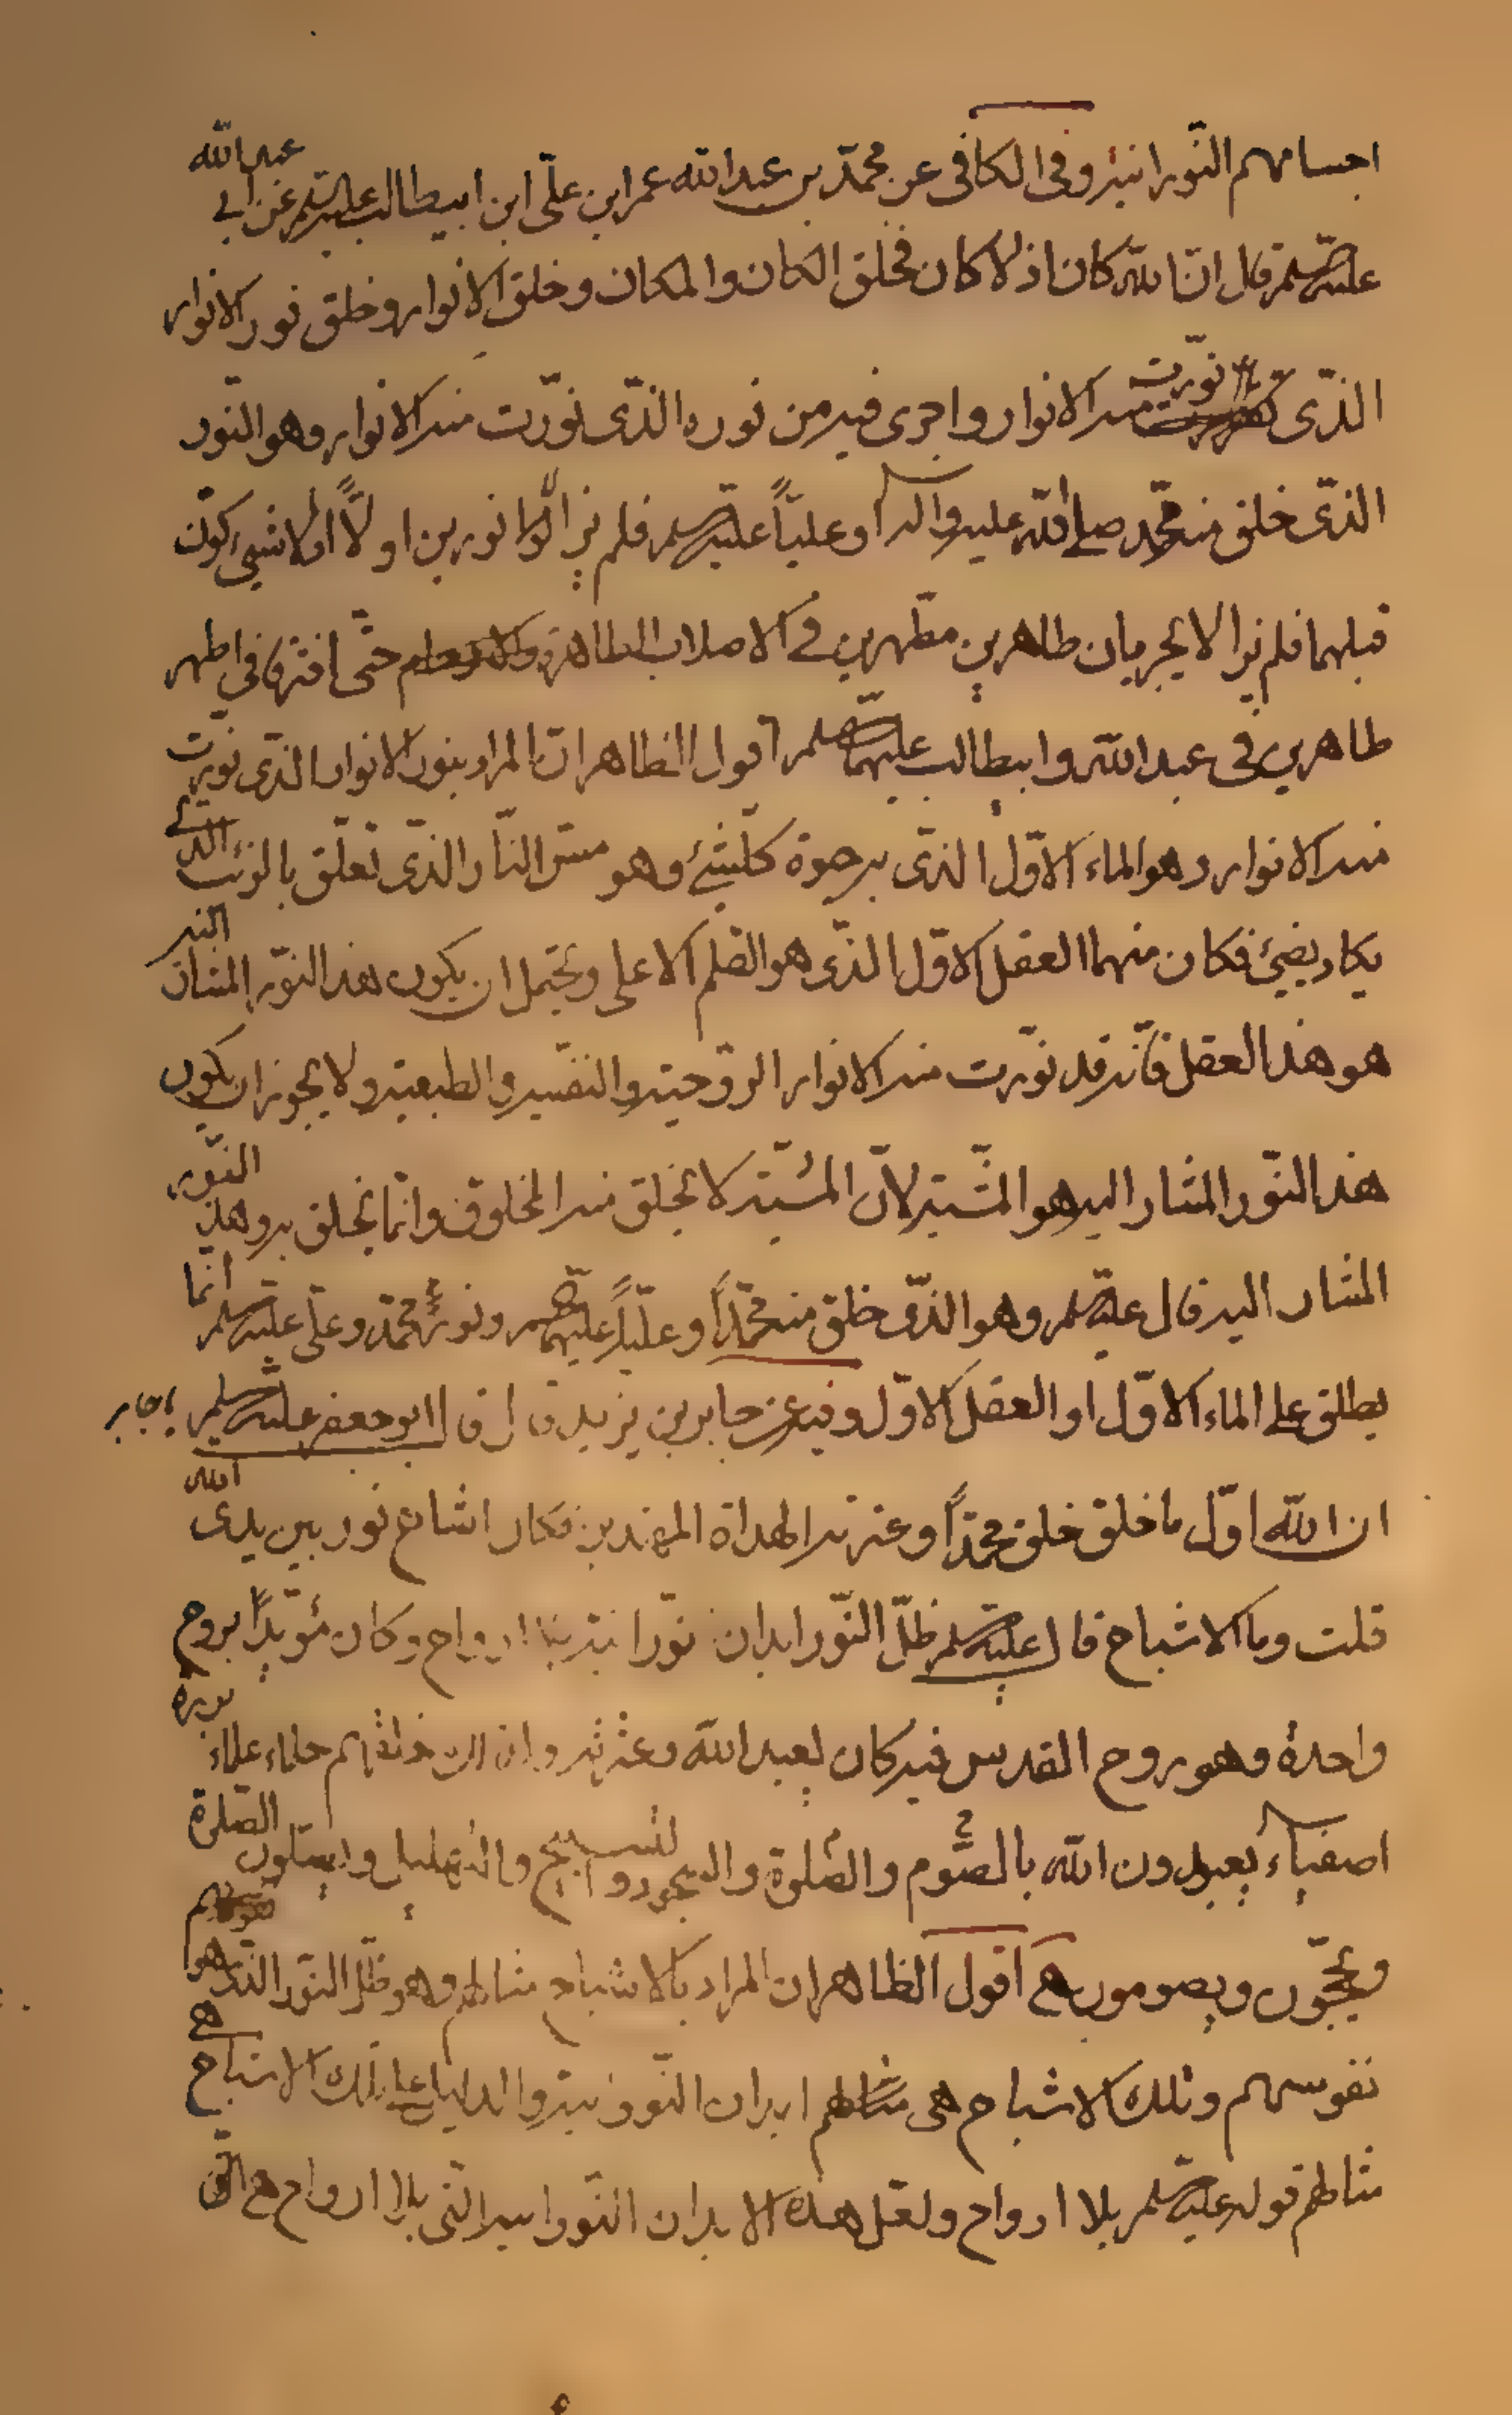 اجسامهم النّورانيّه وفى الكافى عن محمّد بن عبد الله عمر ابن علىّ ابن ابيطالب عليه السلم عن ابي عبد الله
عليه السلم قال انّ الله كان اذ لا كان فخلق الكان والمكان وخلق الانوار وخلق نور الانوار
الذّى نوّرت منه الانوار واجرى فيه من نوره الذّى نوّرت منه الانوار وهو النّور
الذّى خلق منه محمّد صلى الله عليه واله وعليّاً عليه السلم فلم يزالوا نورين اولاً اذ لا شيئ كوّن
قبلهما فلم يزالا يجريان طاهرين مطهّرين في الاصلاب الطاهرة حتّى افترقا في اطهر
طاهرين فى عبد الله وابيطالب عليهما السلم اقول الظاهر انّ المراد بنور الانوار الذّى نوّرت
منه الانوار وهو الماء الاوّل الذّى به حيوة كلّشئ وهو مسّ النّار الذّى تعلّق بالزيت الذي
يكاد يضئ فكان منهما العقل الاوّل الذّى هو القلم الاعلى ويحتمل ان يكون هذا النّور المشار اليه
هو هذا العقل فانّه قد نوّرت منه الانوار الرّوحيّه والنفسيّه والطبعيّه ولا يجوز ان يكون
هذا النّور المشار اليه هو المشيّة لانّ المشيّة لا تخلق منه المخلوق وانّما يخلق به وهذا النّور
المشار اليه قال عليه السلم وهو الذّى خلق منه محمّداً وعليّاً عليهما السلم ونور محمّد وعلى عليه السلم انما
يطلق على الماء الاوّل او العقل الاوّل وفيه عن جابر بن يزيد قال قال ابو جعفر عليه السلم يا جابر
ان الله اوّل ما خلق خلق محمّداً وعترته الهداة المهتدين فكانوا اشباح نور بين يدى الله
قلت وما الاشباح قال عليه السلم ظلّ النّور ابدان نوّرانيّة بلا ارواح وكان مؤيّداً بروح
واحدة وهو روح القدس فبه كان يعبد الله وعترته ولذلك خلقهم حلماء علماء بررة
اصفياء يعبدون الله بالصّوم والصّلوة والسجود والتسبيح والتهليل ويصلّون الصّلوة
ويحجّون ويصومون هـ اقول الظاهر ان المراد بالاشباح مثالهم وهو ظلّ النّور الذّى هو
نفوسهم وتلك الاشباح هى مثالهم ابدان النّورانيّة والدليل على انّ تلك الاشباح هى
مثالهم قوله عليه السلم بلا ارواح ولعلّ هذه الابدان النّورانيّة الّتى بلا ارواح هى الّتى